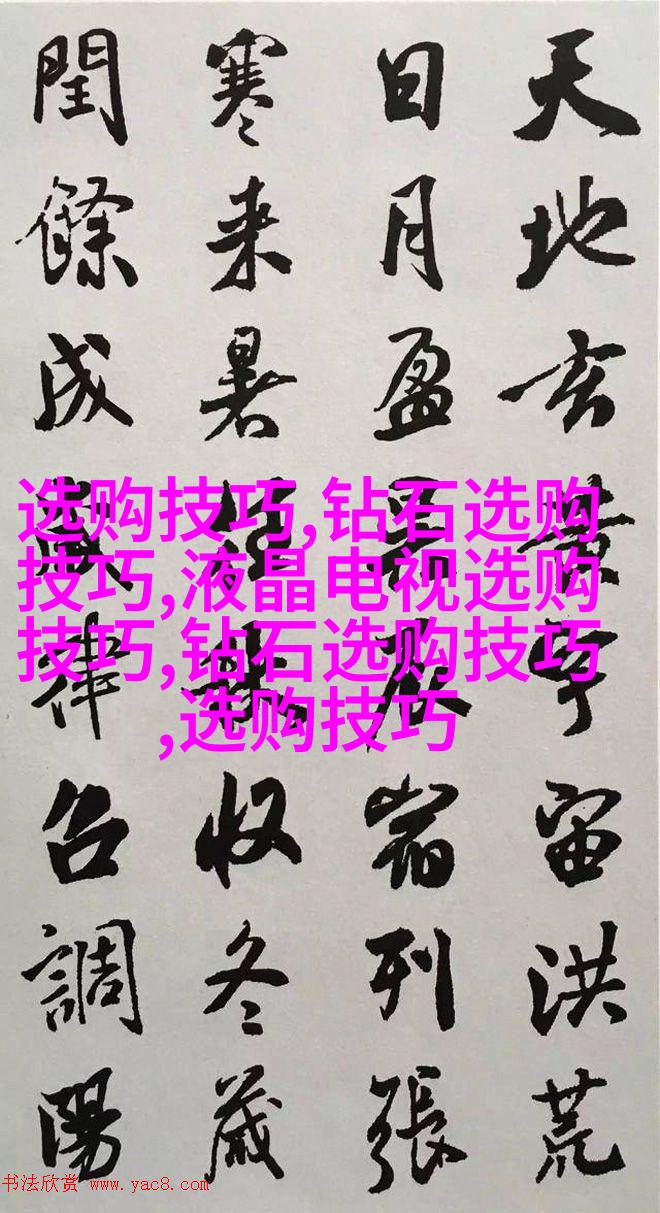 天地玄黄宇宙洪荒
日月盈昃辰宿列張
寒来暑往秋收冬藏
閏餘成歲律召調陽
选购技巧,钻石选购
技巧,液晶电视选购
技巧,钻石选购技巧
,选购技巧
书法欣赏 www.yac8.com